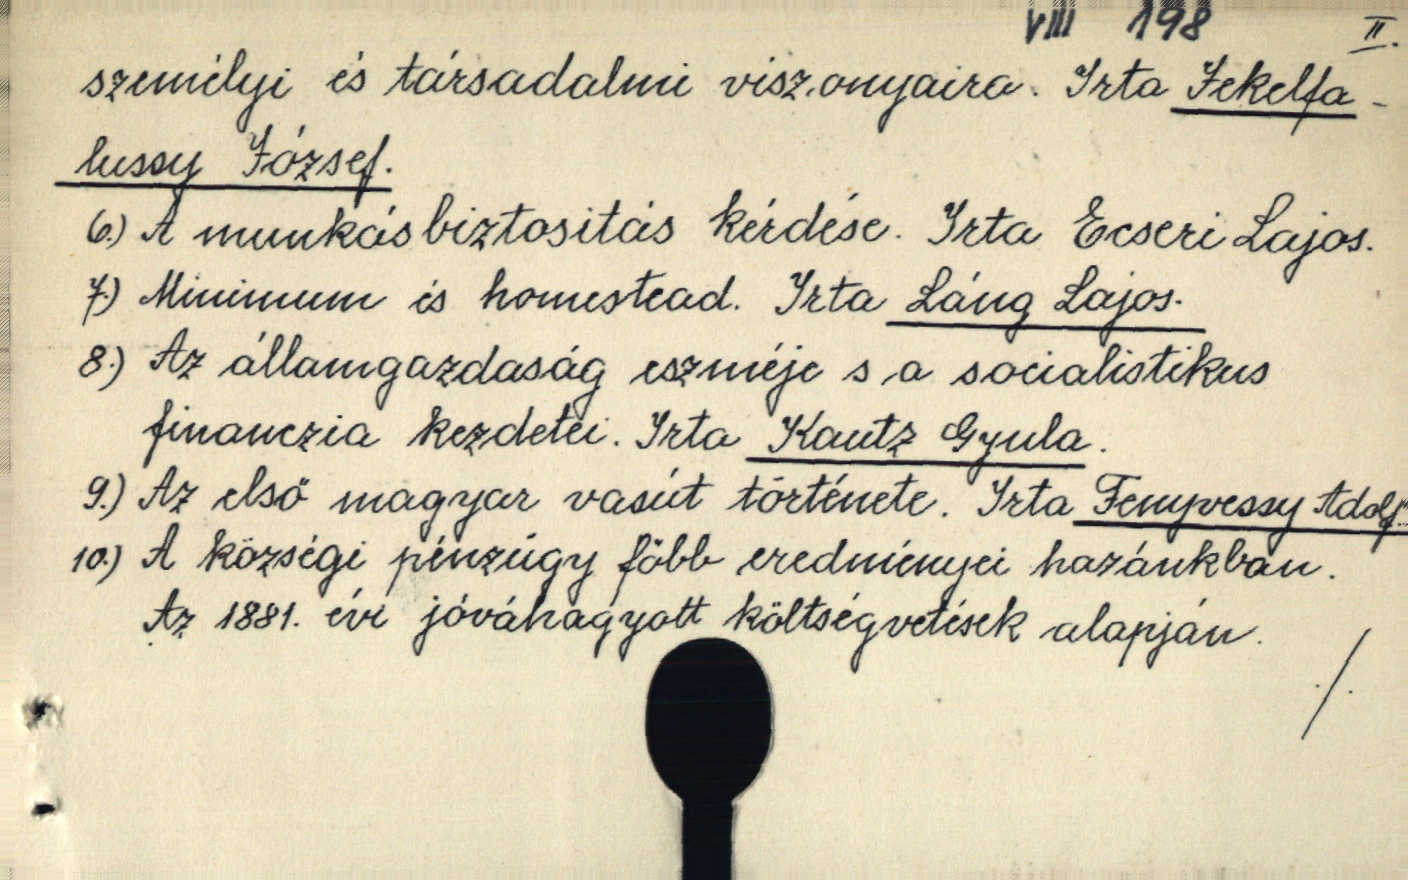 VIII 198 II.
személyi és társadalmi viszonyaira. Irta Jekelfa-
lussy József.
6.) A munkásbiztositás kérdése. Irta Ecseri Lajos.
7.) Minimum és homestead. Irta Láng Lajos.
8.) Az államgazdaság eszméje s a socialistikus
financzia kezdetei. Irta Kautz Gyula.
9.) Az első magyar vasút története. Irta Fenyvessy Adolf.
10.) A községi pénzügy főbb eredményei hazánkban.
Az 1881. évi jóváhagyott költségvetések alapján.
./.